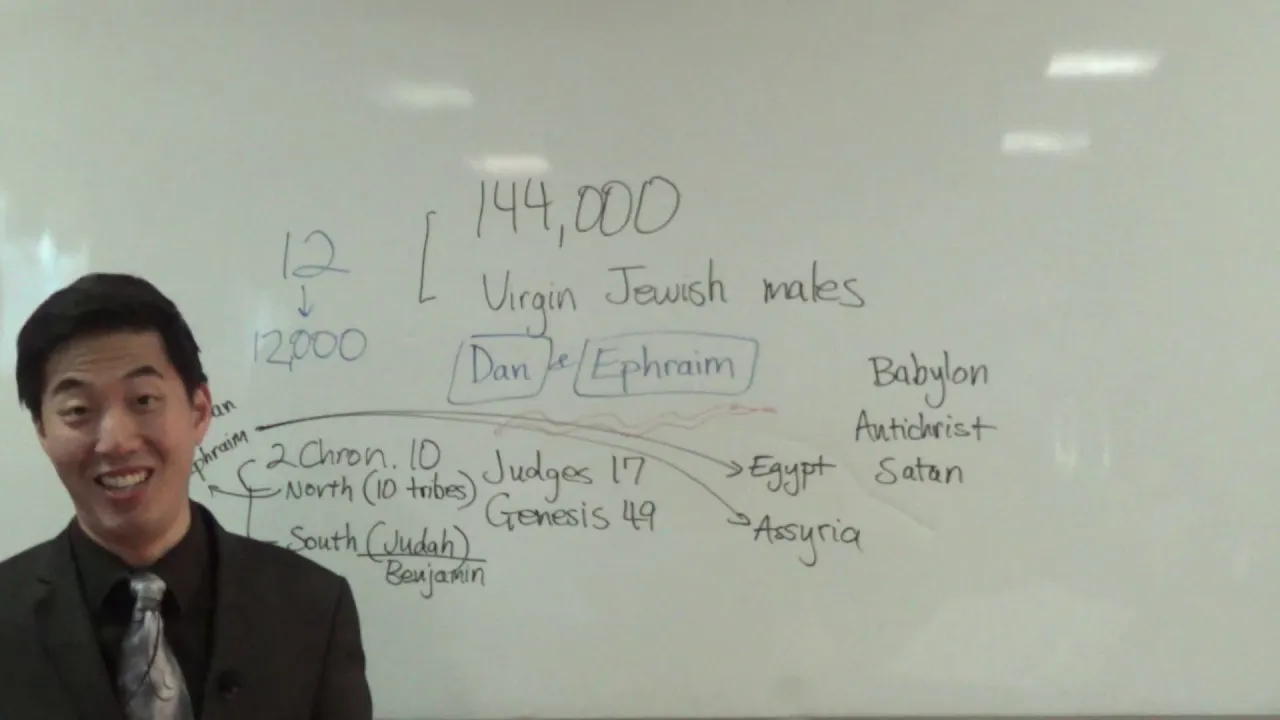 144,000
12
Virgin Jewish males
12,000
Dan & Ephraim
Babylon
Antichrist
Satan
2 Chron. 10
North (10 tribes)
South (Judah)
Benjamin
Judges 17
Genesis 49
Egypt
Assyria